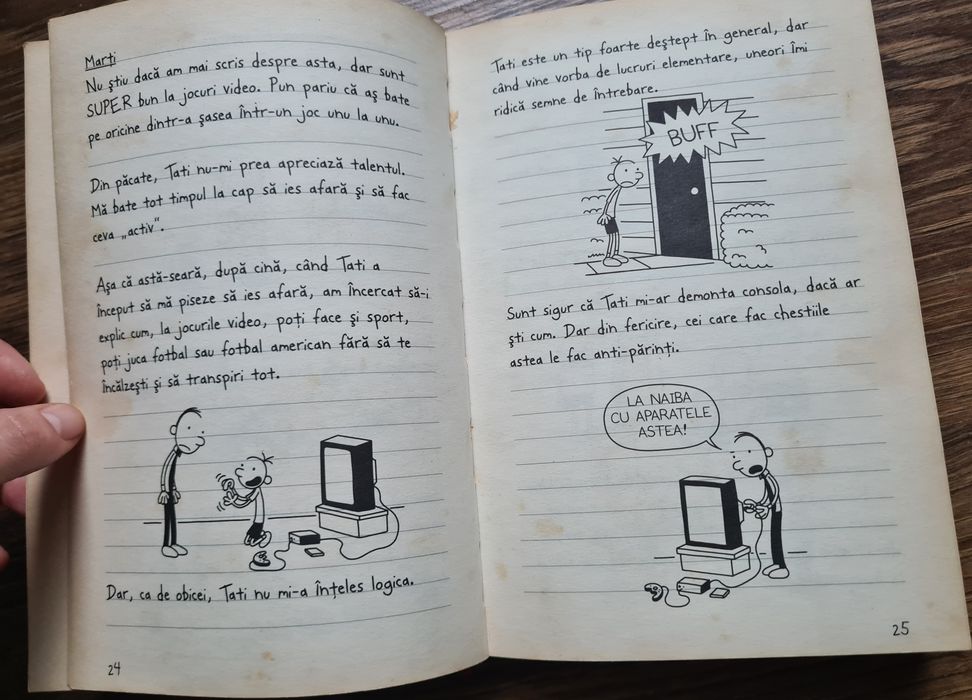 Marți
Nu știu dacă am mai scris despre asta, dar sunt
SUPER bun la jocuri video. Pun pariu că aș bate
pe oricine dintr-a șasea într-un joc unu la unu.
Din păcate, Tati nu-mi prea apreciază talentul.
Mă bate tot timpul la cap să ies afară și să fac
ceva „activ“.
Așa că astă-seară, după cină, când Tati a
început să mă piseze să ies afară, am încercat să-i
explic cum, la jocurile video, poți face și sport,
poți juca fotbal sau fotbal american fără să te
încălzești și să transpiri tot.
Dar, ca de obicei, Tati nu mi-a înțeles logica.
24
Tati este un tip foarte deștept în general, dar
când vine vorba de lucruri elementare, uneori îmi
ridică semne de întrebare.
BUFF
Sunt sigur că Tati mi-ar demonta consola, dacă ar
ști cum. Dar din fericire, cei care fac chestiile
astea le fac anti-părinți.
LA NAIBA
CU APARATELE
ASTEA!
25